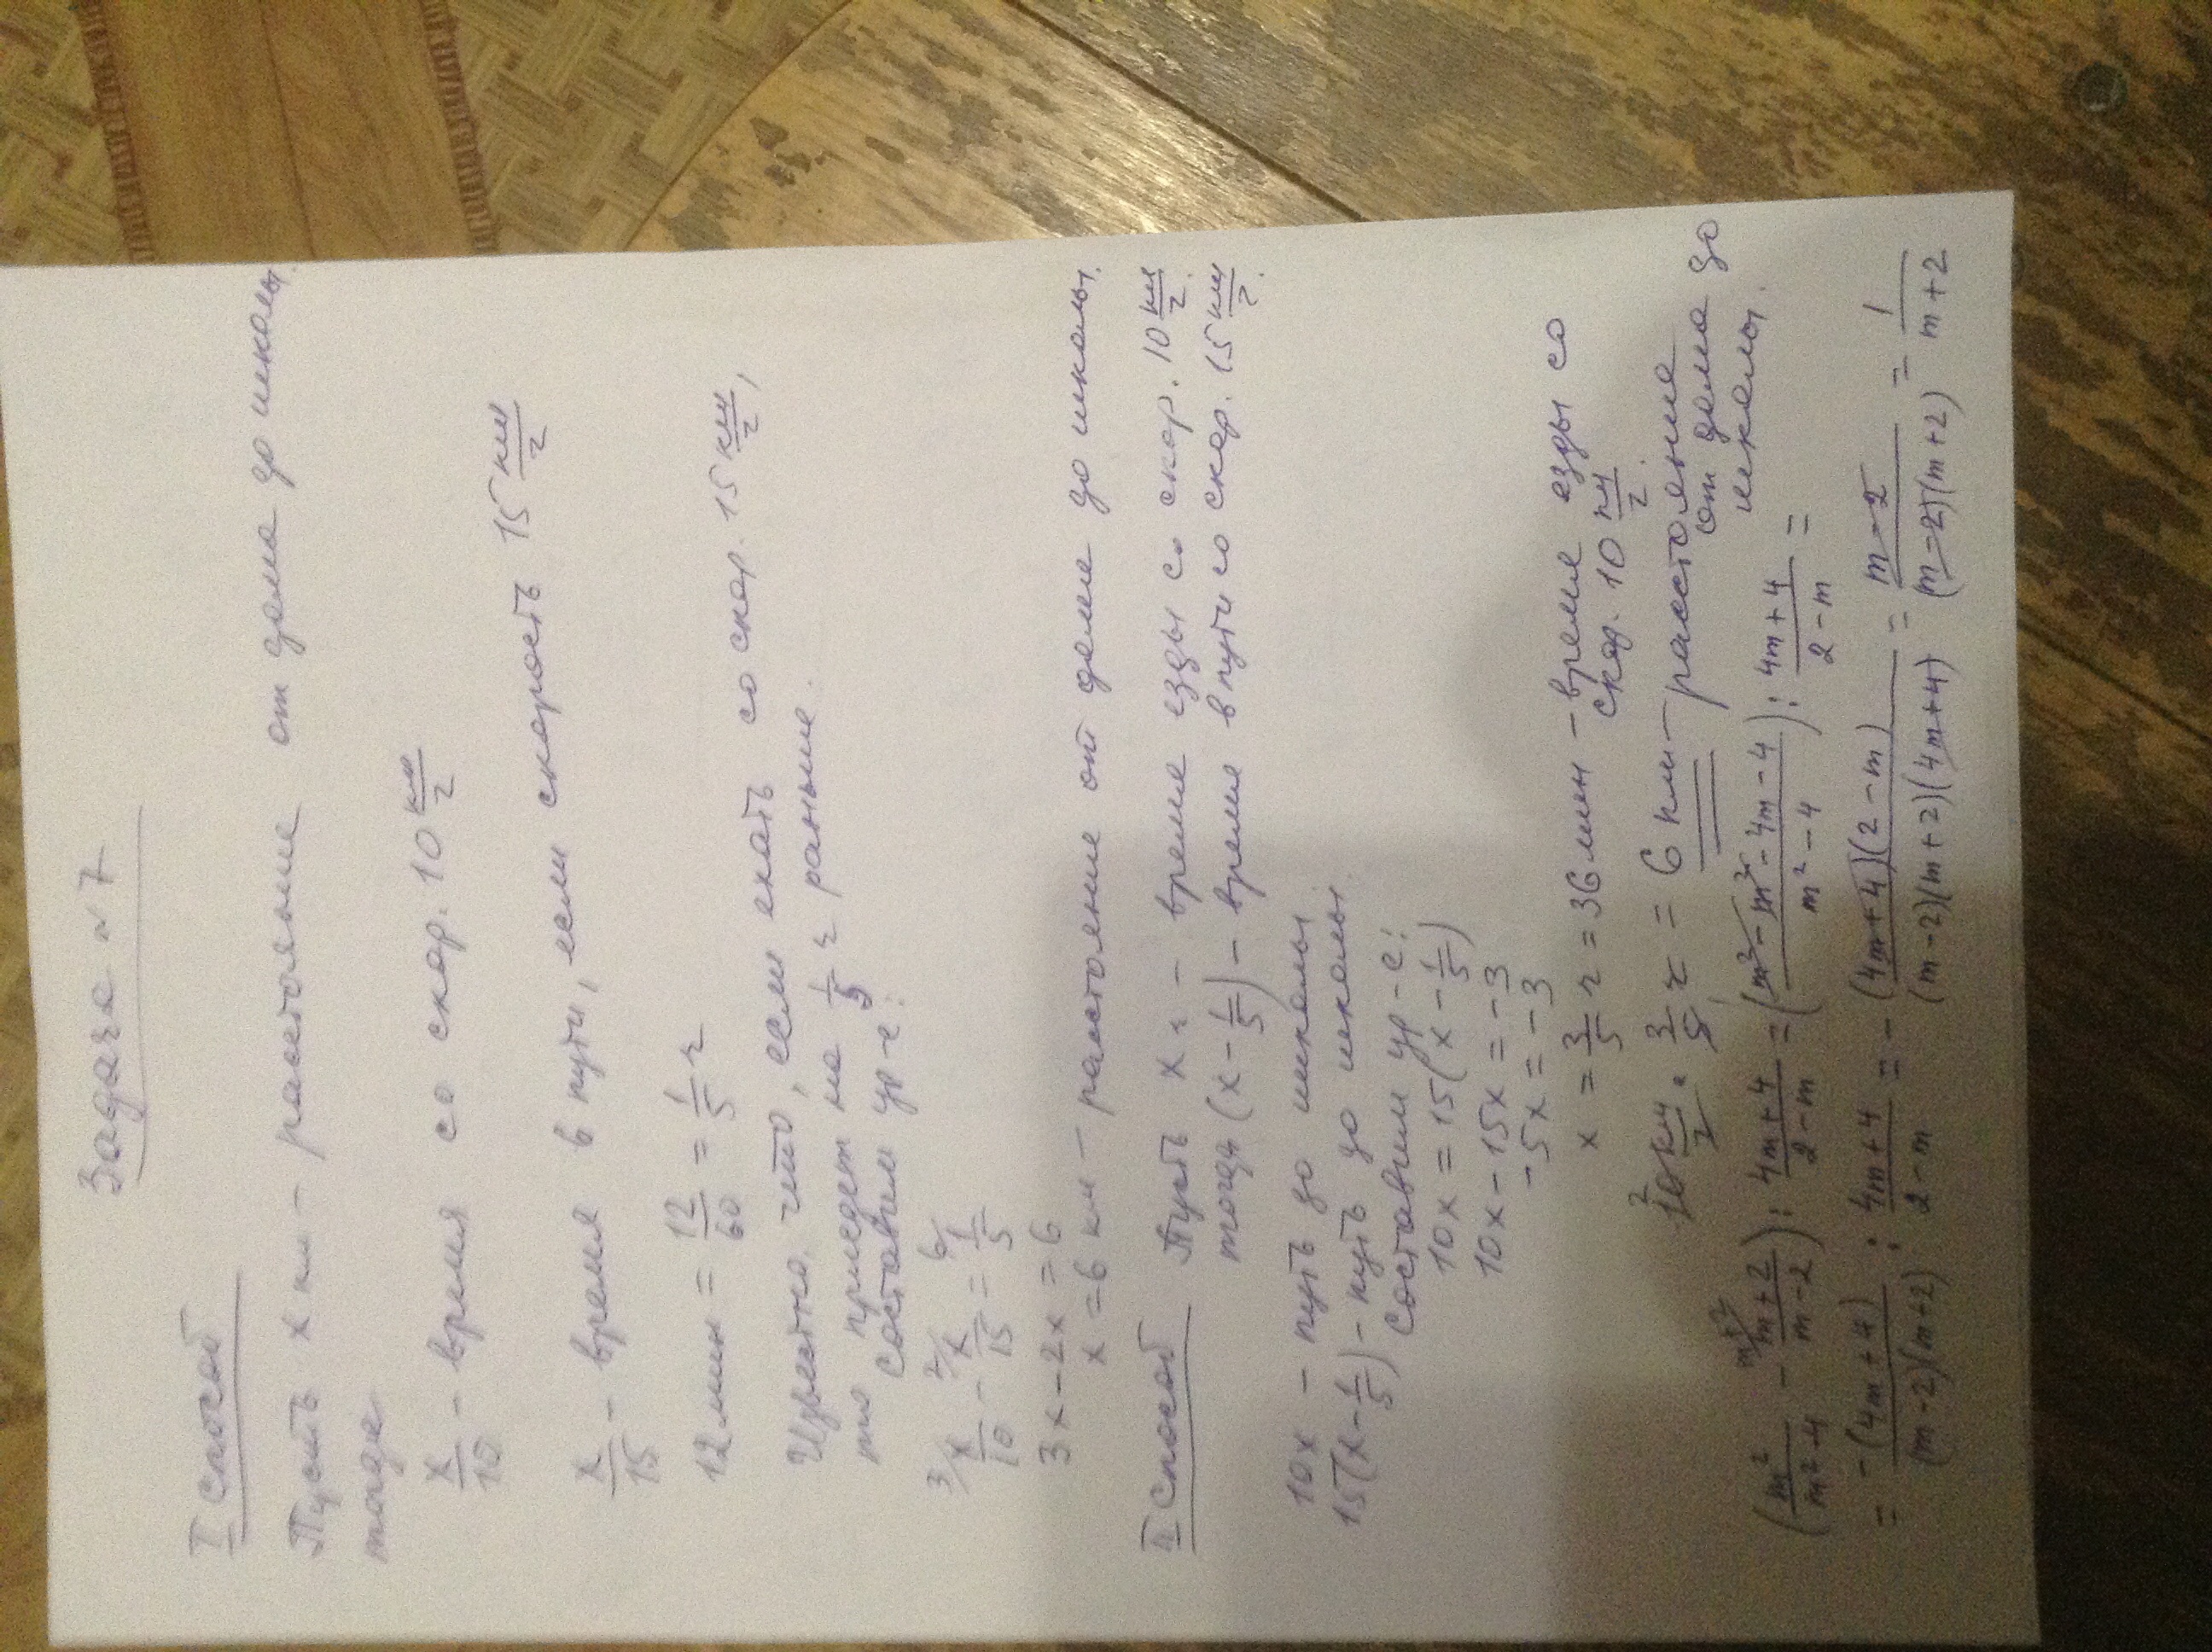 Задача № 7
I способ
Пусть x км - расстояние от дома до школы.
тогда
x/10 - время со скор. 10 км/ч
x/15 - время в пути, если скорость 15 км/ч
12 мин = 12/60 = 1/5 ч
Известно, что, если ехать со скор. 15 км/ч,
то приедет на 1/5 ч раньше.
составим ур-е:
3/ x/10 - 2/ x/15 = 6/ 1/5
3x - 2x = 6
x = 6 км - расстояние от дома до школы.
II способ Пусть x ч - время езды со скор. 10 км/ч.
тогда (x - 1/5) - время в пути со скор. 15 км/ч.
10x - путь до школы
15(x - 1/5) - путь до школы.
Составим ур-е:
10x = 15(x - 1/5)
10x - 15x = -3
-5x = -3
x = 3/5 ч = 36 мин - время езды со
скор. 10 км/ч.
10 км/ч · 3/5 ч = 6 км - расстояние
от дома до
школы.
(m²/(m²-4) - (m+2)/(m-2)) : (4m+4)/(2-m) = ((m² - m² - 4m - 4)/(m² - 4)) : (4m+4)/(2-m) =
= -(4m+4)/((m-2)(m+2)) : (4m+4)/(2-m) = - (4m+4)(2-m)/((m-2)(m+2)(4m+4)) = (m-2)/((m-2)(m+2)) = 1/(m+2)